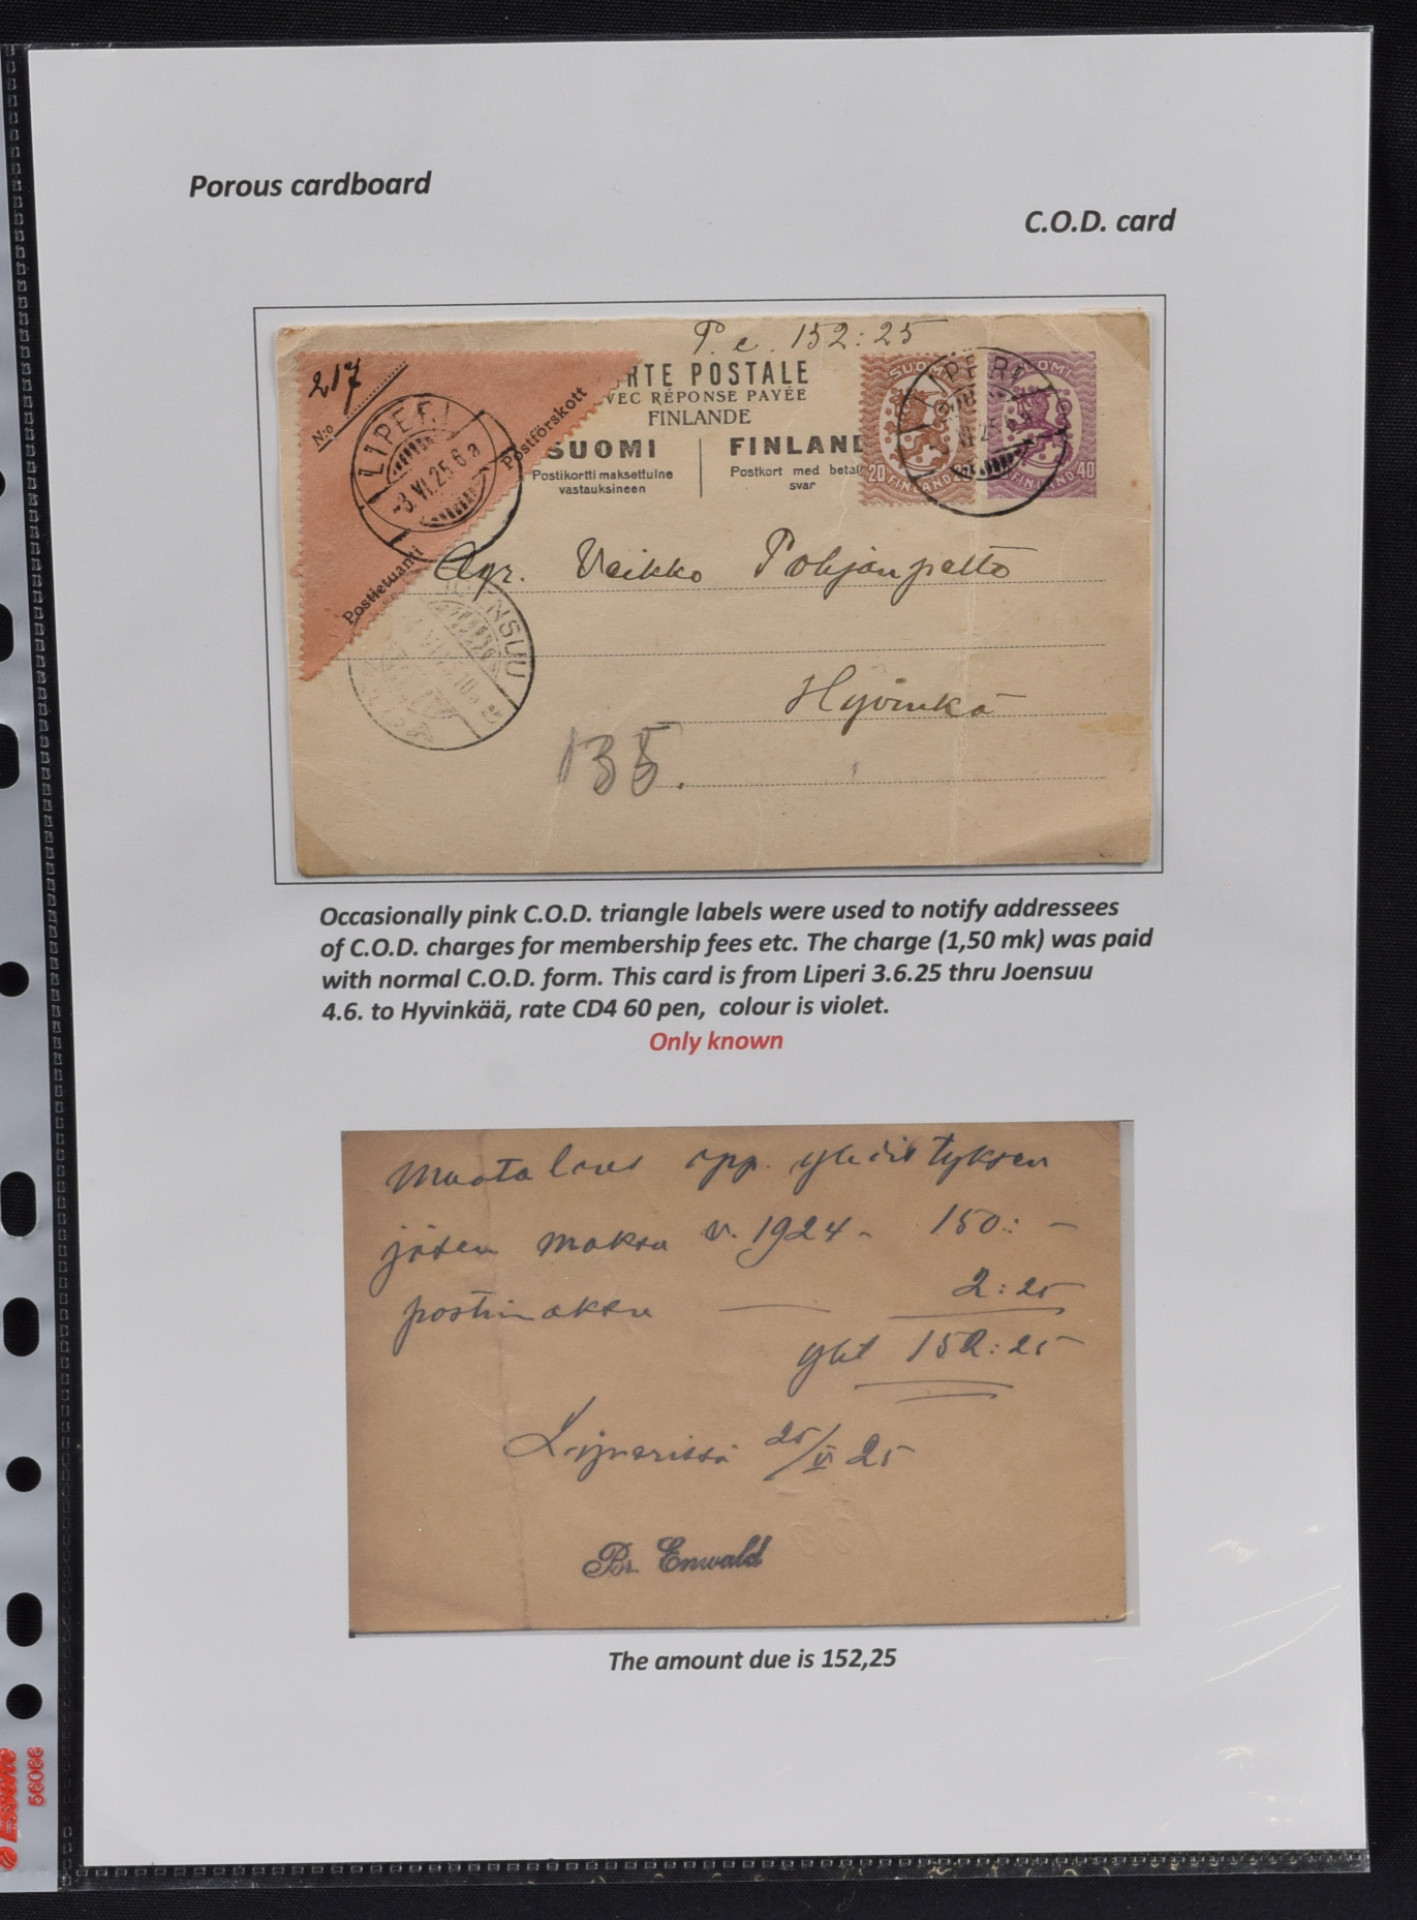 Porous cardboard
C.O.D. card
P.e. 152:25
217
N:o
LIPERI
-3.VI.25.6a
Postförskott
Postietuanti
RTE POSTALE
VEC RÉPONSE PAYÉE
FINLANDE
SUOMI
FINLAND
Postikortti maksettuine
vastauksineen
Postkort med betal
svar
SUOMI
20 FINLAND 20
SUOMI
FINLAND 40
LIPERI
Agr. Veikko Pohjanpelto
NSUU
Hyvinkä
135.
Occasionally pink C.O.D. triangle labels were used to notify addressees
of C.O.D. charges for membership fees etc. The charge (1,50 mk) was paid
with normal C.O.D. form. This card is from Liperi 3.6.25 thru Joensuu
4.6. to Hyvinkää, rate CD4 60 pen, colour is violet.
Only known
Maatalous opp. yhdistyksen
jäsen maksu v. 1924 - 150: -
postimaksu 2:25
yht 152:25
Liperissä 25/VI 25
Br. Enwald
The amount due is 152,25
Esselte
56066